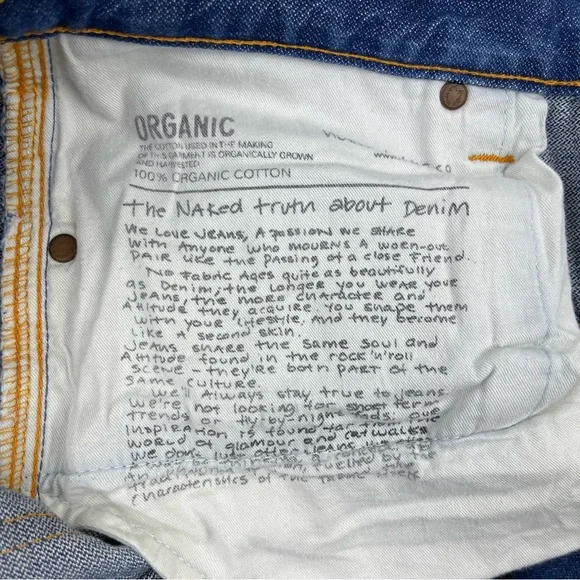 ORGANIC
THE COTTON USED IN THE MAKING
OF THIS GARMENT IS ORGANICALLY GROWN
AND HARVESTED
100% ORGANIC COTTON
The NAKed truth about Denim
We Love JEANS, A PASSION WE SHARE
With Anyone who mourns a worn-out
PAIR Like the Passing of a close Friend.
No Fabric Ages quite as beautifully
as Denim, the Longer you wear your
Jeans, the more character and
Attitude they acquire. You shape them
with your Lifestyle. And they become
Like a second skin.
Jeans share the same soul and
Attitude found in the rock'n'roll
scene - they're both part of the
same culture.
We'll Always stay true to jeans
We're not looking for short term
trends or our
inspiration is found far
world of glamour and catwalks
We don't
tradition
characteristics of the